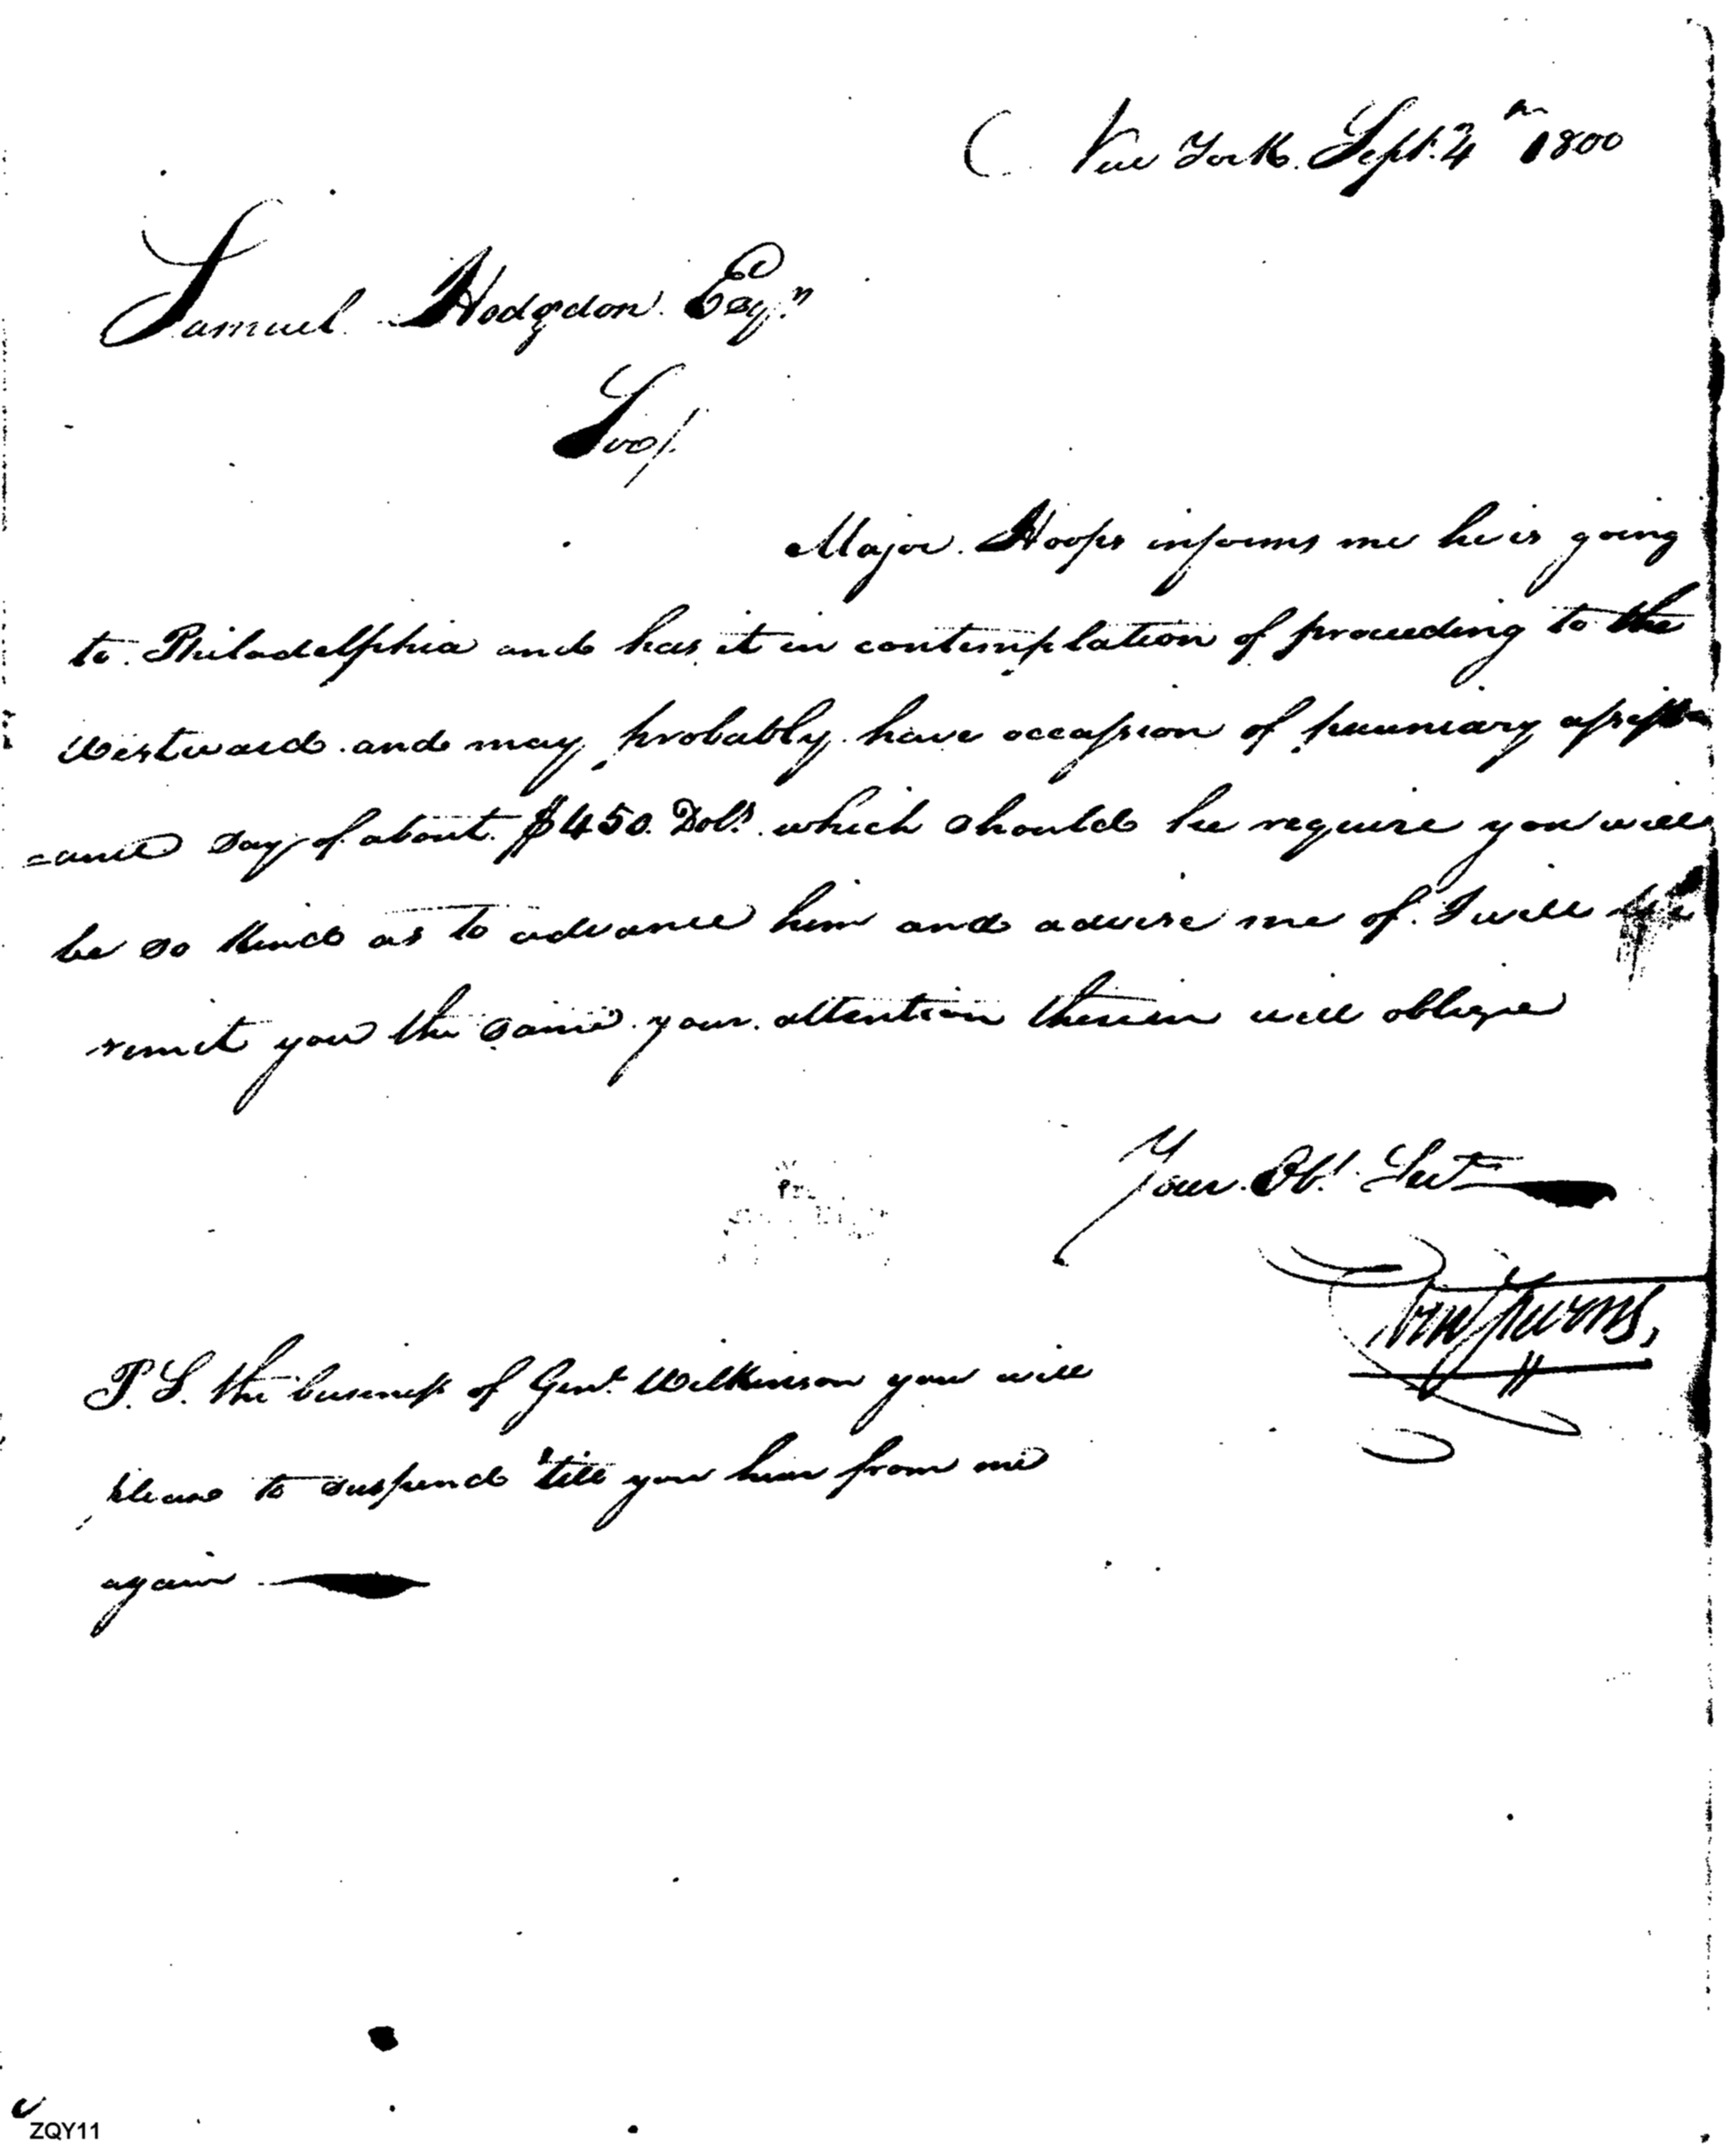 New York. Sept. 4th 1800
Samuel Hodgdon Esqr.
Sir/.
Major. Hoops informs me he is going
to Philadelphia and has it in contemplation of proceeding to the
Westward and may probably have occassion of pecuniary assist
=ance say of about $450. Dolls. which should he require you will
be so kind as to advance him and advise me of. I will
remit you the same. your attention therein will oblige
Your. Obt. Sert
P.S. the business of Genl. Wilkinson you will
please to suspend 'till you hear from me
again
ZQY11